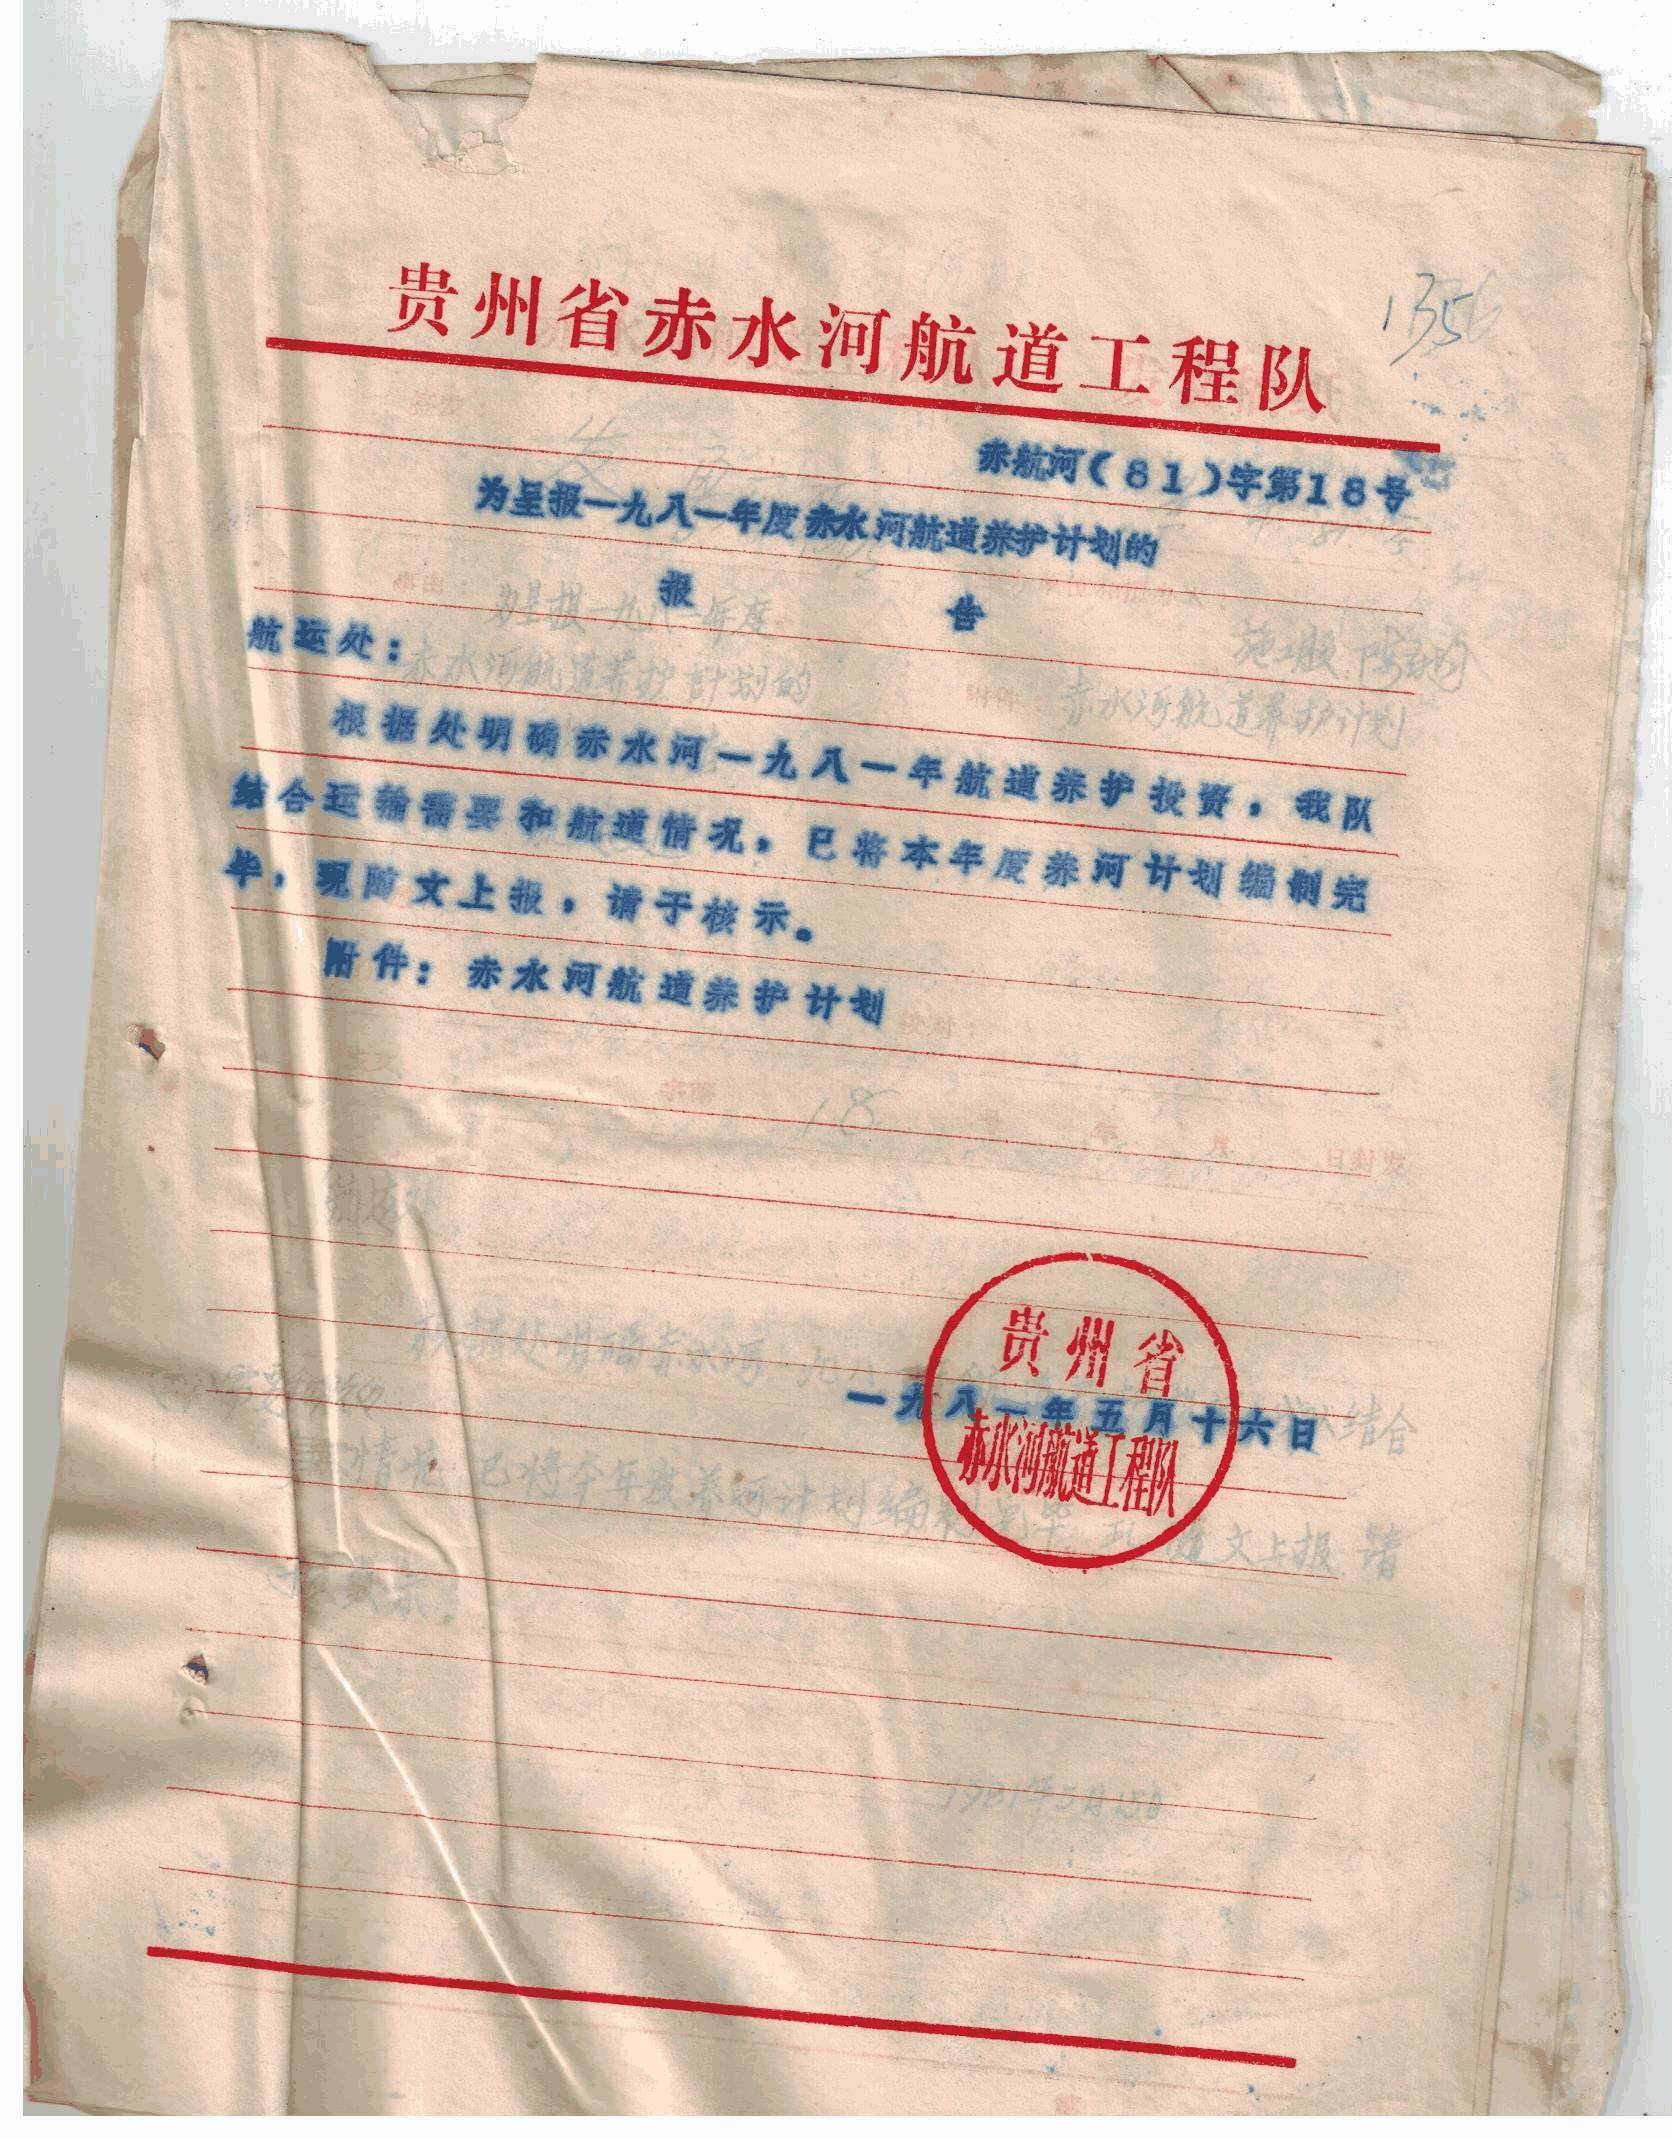 贵州省赤水河航道工程队
1356
赤航河(81)字第18号
为呈报一九八一年度赤水河航道养护计划的
报告
航运处：
根据处明确赤水河一九八一年航道养护投资，我队
结合运输需要和航道情况，已将本年度养河计划编制完
毕，现随文上报，请于核示。
附件：赤水河航道养护计划
贵州省
一九八一年五月十六日
赤水河航道工程队